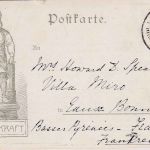 Postkarte.
An
Mrs. Howard D. Spea
Villa Miro
in Eaux Bonn
Basses Pyrénées –
France
KRAFT